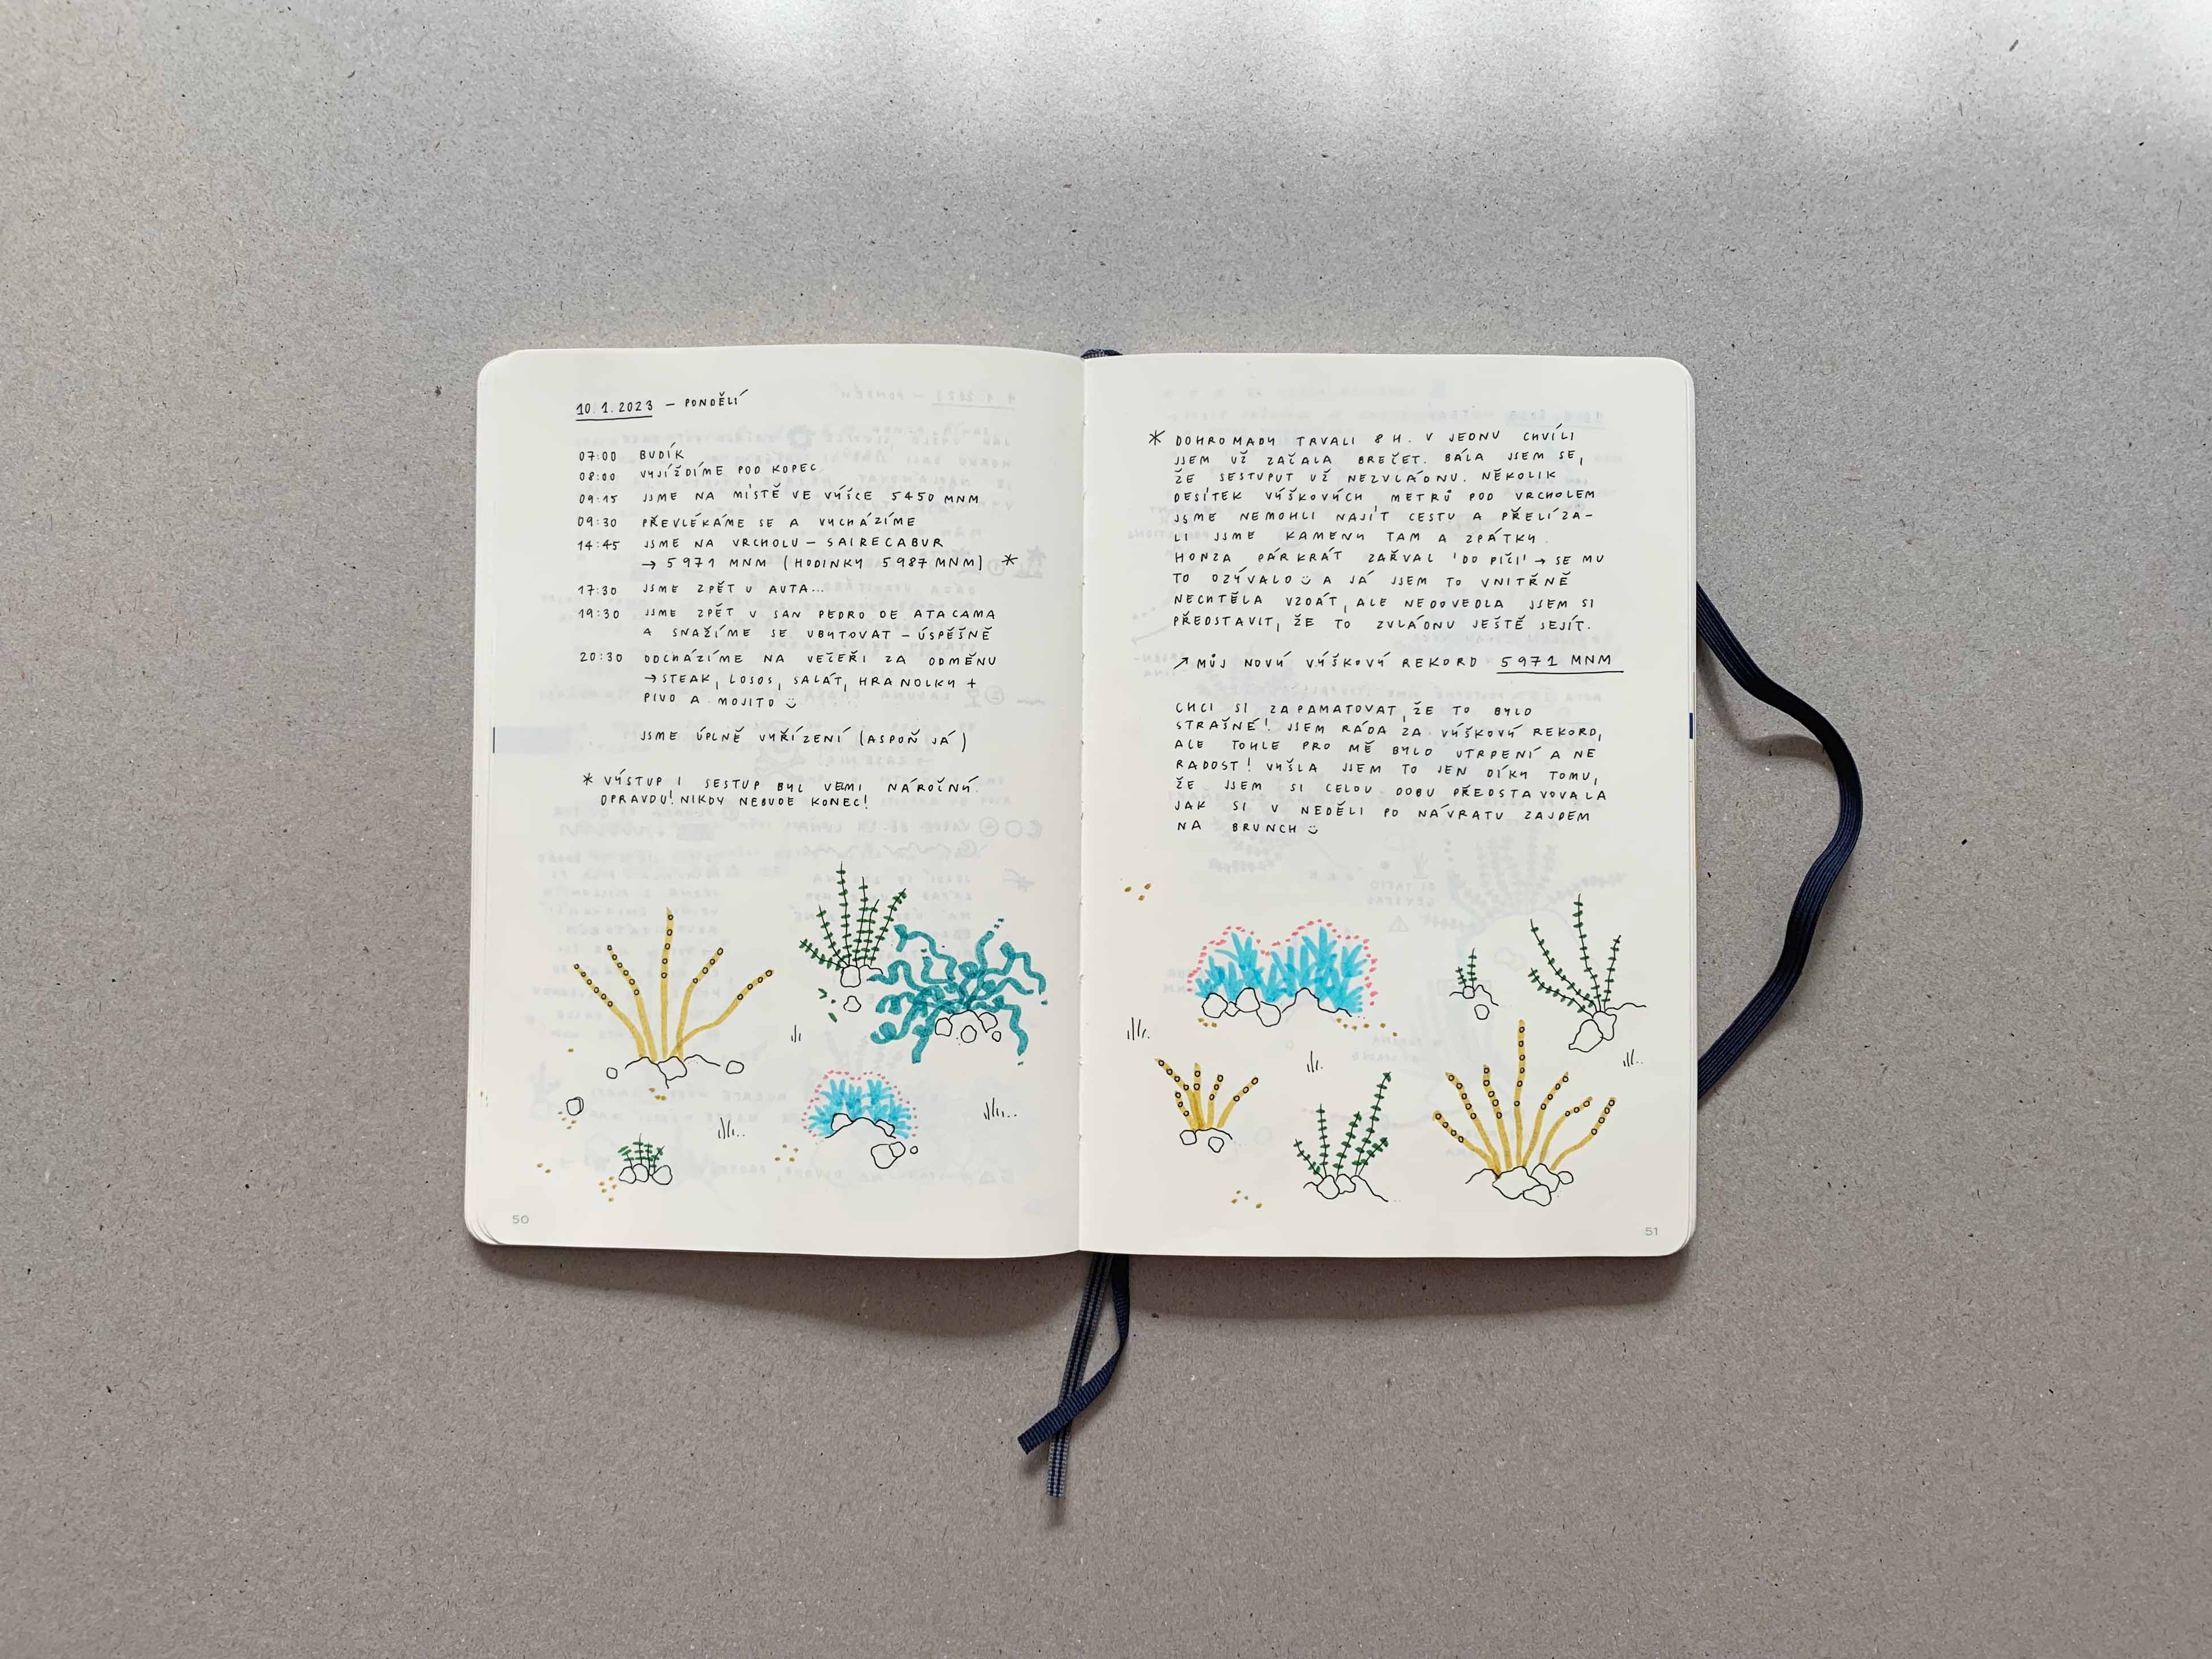 10.1.2023 – PONDĚLÍ
07:00 BUDÍK
08:00 VYJÍŽDÍME POD KOPEC
09:15 JSME NA MÍSTĚ VE VÝŠCE 5450 MNM
09:30 PŘEVLÉKÁME SE A VYCHÁZÍME
14:45 JSME NA VRCHOLU – SAIRECABUR
→ 5971 MNM (HODINKY 5987 MNM) *
17:30 JSME ZPĚT U AUTA...
19:30 JSME ZPĚT V SAN PEDRO DE ATACAMA
A SNAŽÍME SE UBYTOVAT – ÚSPĚŠNĚ
20:30 ODCHÁZÍME NA VEČEŘI ZA ODMĚNU
→ STEAK, LOSOS, SALÁT, HRANOLKY +
PIVO A MOJITO ☺
JSME ÚPLNĚ VYŘÍZENÍ (ASPOŇ JÁ)
* VÝSTUP I SESTUP BYL VEMI NÁROČNÝ.
OPRAVDU! NIKDY NEBUDE KONEC!
50
* DOHROMADY TRVALI 8 H. V JEDNU CHVÍLI
JSEM UŽ ZAČALA BREČET. BÁLA JSEM SE,
ŽE SESTUPUT UŽ NEZVLÁDNU. NĚKOLIK
DESÍTEK VÝŠKOVÝCH METRŮ POD VRCHOLEM
JSME NEMOHLI NAJÍT CESTU A PŘELÍZA–
LI JSME KAMENY TAM A ZPÁTKY.
HONZA PÁRKRÁT ZAŘVAL 'DO PIČI' → SE MU
TO OZÝVALO ☺ A JÁ JSEM TO VNITŘNĚ
NECHTĚLA VZDÁT, ALE NEDOVEDLA JSEM SI
PŘEDSTAVIT, ŽE TO ZVLÁDNU JEŠTĚ SEJÍT.
↗ MŮJ NOVÝ VÝŠKOVÝ REKORD 5971 MNM
CHCI SI ZAPAMATOVAT, ŽE TO BYLO
STRAŠNÉ! JSEM RÁDA ZA VÝŠKOVÝ REKORD,
ALE TOHLE PRO MĚ BYLO UTRPENÍ A NE
RADOST! VYŠLA JSEM TO JEN DÍKY TOMU,
ŽE JSEM SI CELOU DOBU PŘEDSTAVOVALA
JAK SI V NEDĚLI PO NÁVRATU ZAJDEM
NA BRUNCH ☺
51